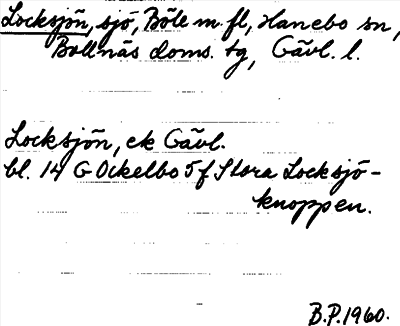 Locksjön, sjö, Böle m. fl, Hanebo sn,
Bollnäs doms. tg, Gävl. l.
Locksjön, ek Gävl.
bl. 14 G Ockelbo 5 f Stora Locksjö-
knoppen.
B.P. 1960.